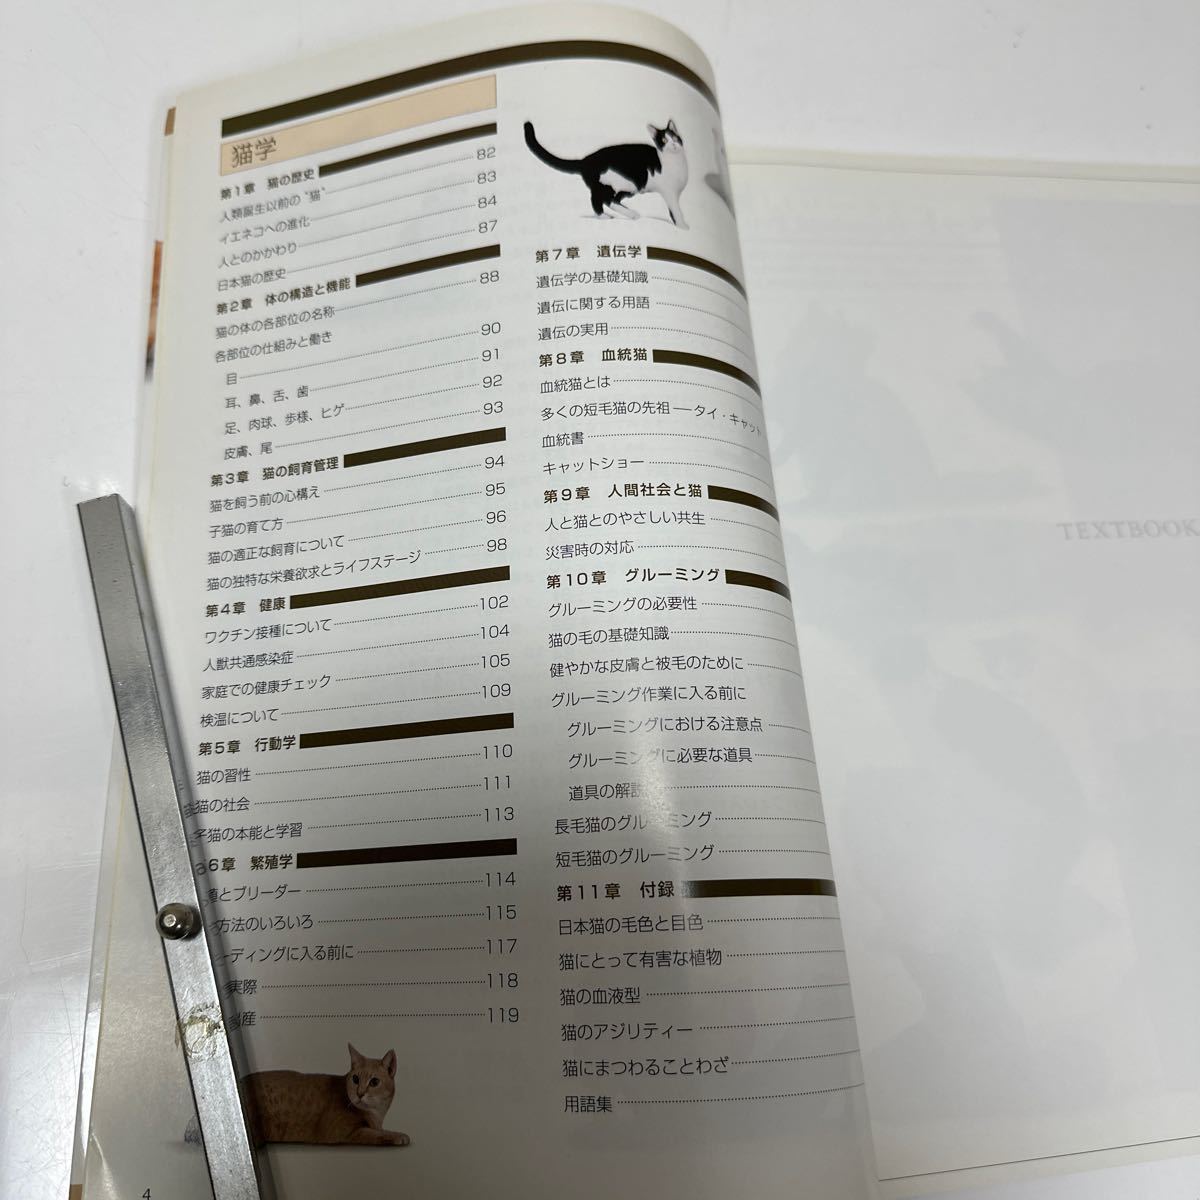 猫学
第1章 猫の歴史
人類誕生以前の“猫” 82
イエネコへの進化 83
人とのかかわり 84
日本猫の歴史 87
第2章 体の構造と機能
猫の体の各部位の名称 88
各部位の仕組みと働き
目 90
耳、鼻、舌、歯 91
足、肉球、歩様、ヒゲ 92
皮膚、尾 93
第3章 猫の飼育管理
猫を飼う前の心構え 94
子猫の育て方 95
猫の適正な飼育について 96
猫の独特な栄養欲求とライフステージ 98
第4章 健康
ワクチン接種について 102
人獣共通感染症 104
家庭での健康チェック 105
検温について 109
第5章 行動学
猫の習性 110
猫の社会 111
子猫の本能と学習 113
6章 繁殖学
とブリーダー 114
方法のいろいろ 115
ーディングに入る前に 117
実際 118
産 119
4
第7章 遺伝学
遺伝学の基礎知識
遺伝に関する用語
遺伝の実用
第8章 血統猫
血統猫とは
多くの短毛猫の先祖―タイ・キャット
血統書
キャットショー
第9章 人間社会と猫
人と猫とのやさしい共生
災害時の対応
第10章 グルーミング
グルーミングの必要性
猫の毛の基礎知識
健やかな皮膚と被毛のために
グルーミング作業に入る前に
グルーミングにおける注意点
グルーミングに必要な道具
道具の解説
長毛猫のグルーミング
短毛猫のグルーミング
第11章 付録
日本猫の毛色と目色
猫にとって有害な植物
猫の血液型
猫のアジリティー
猫にまつわることわざ
用語集
TEXTBOOK